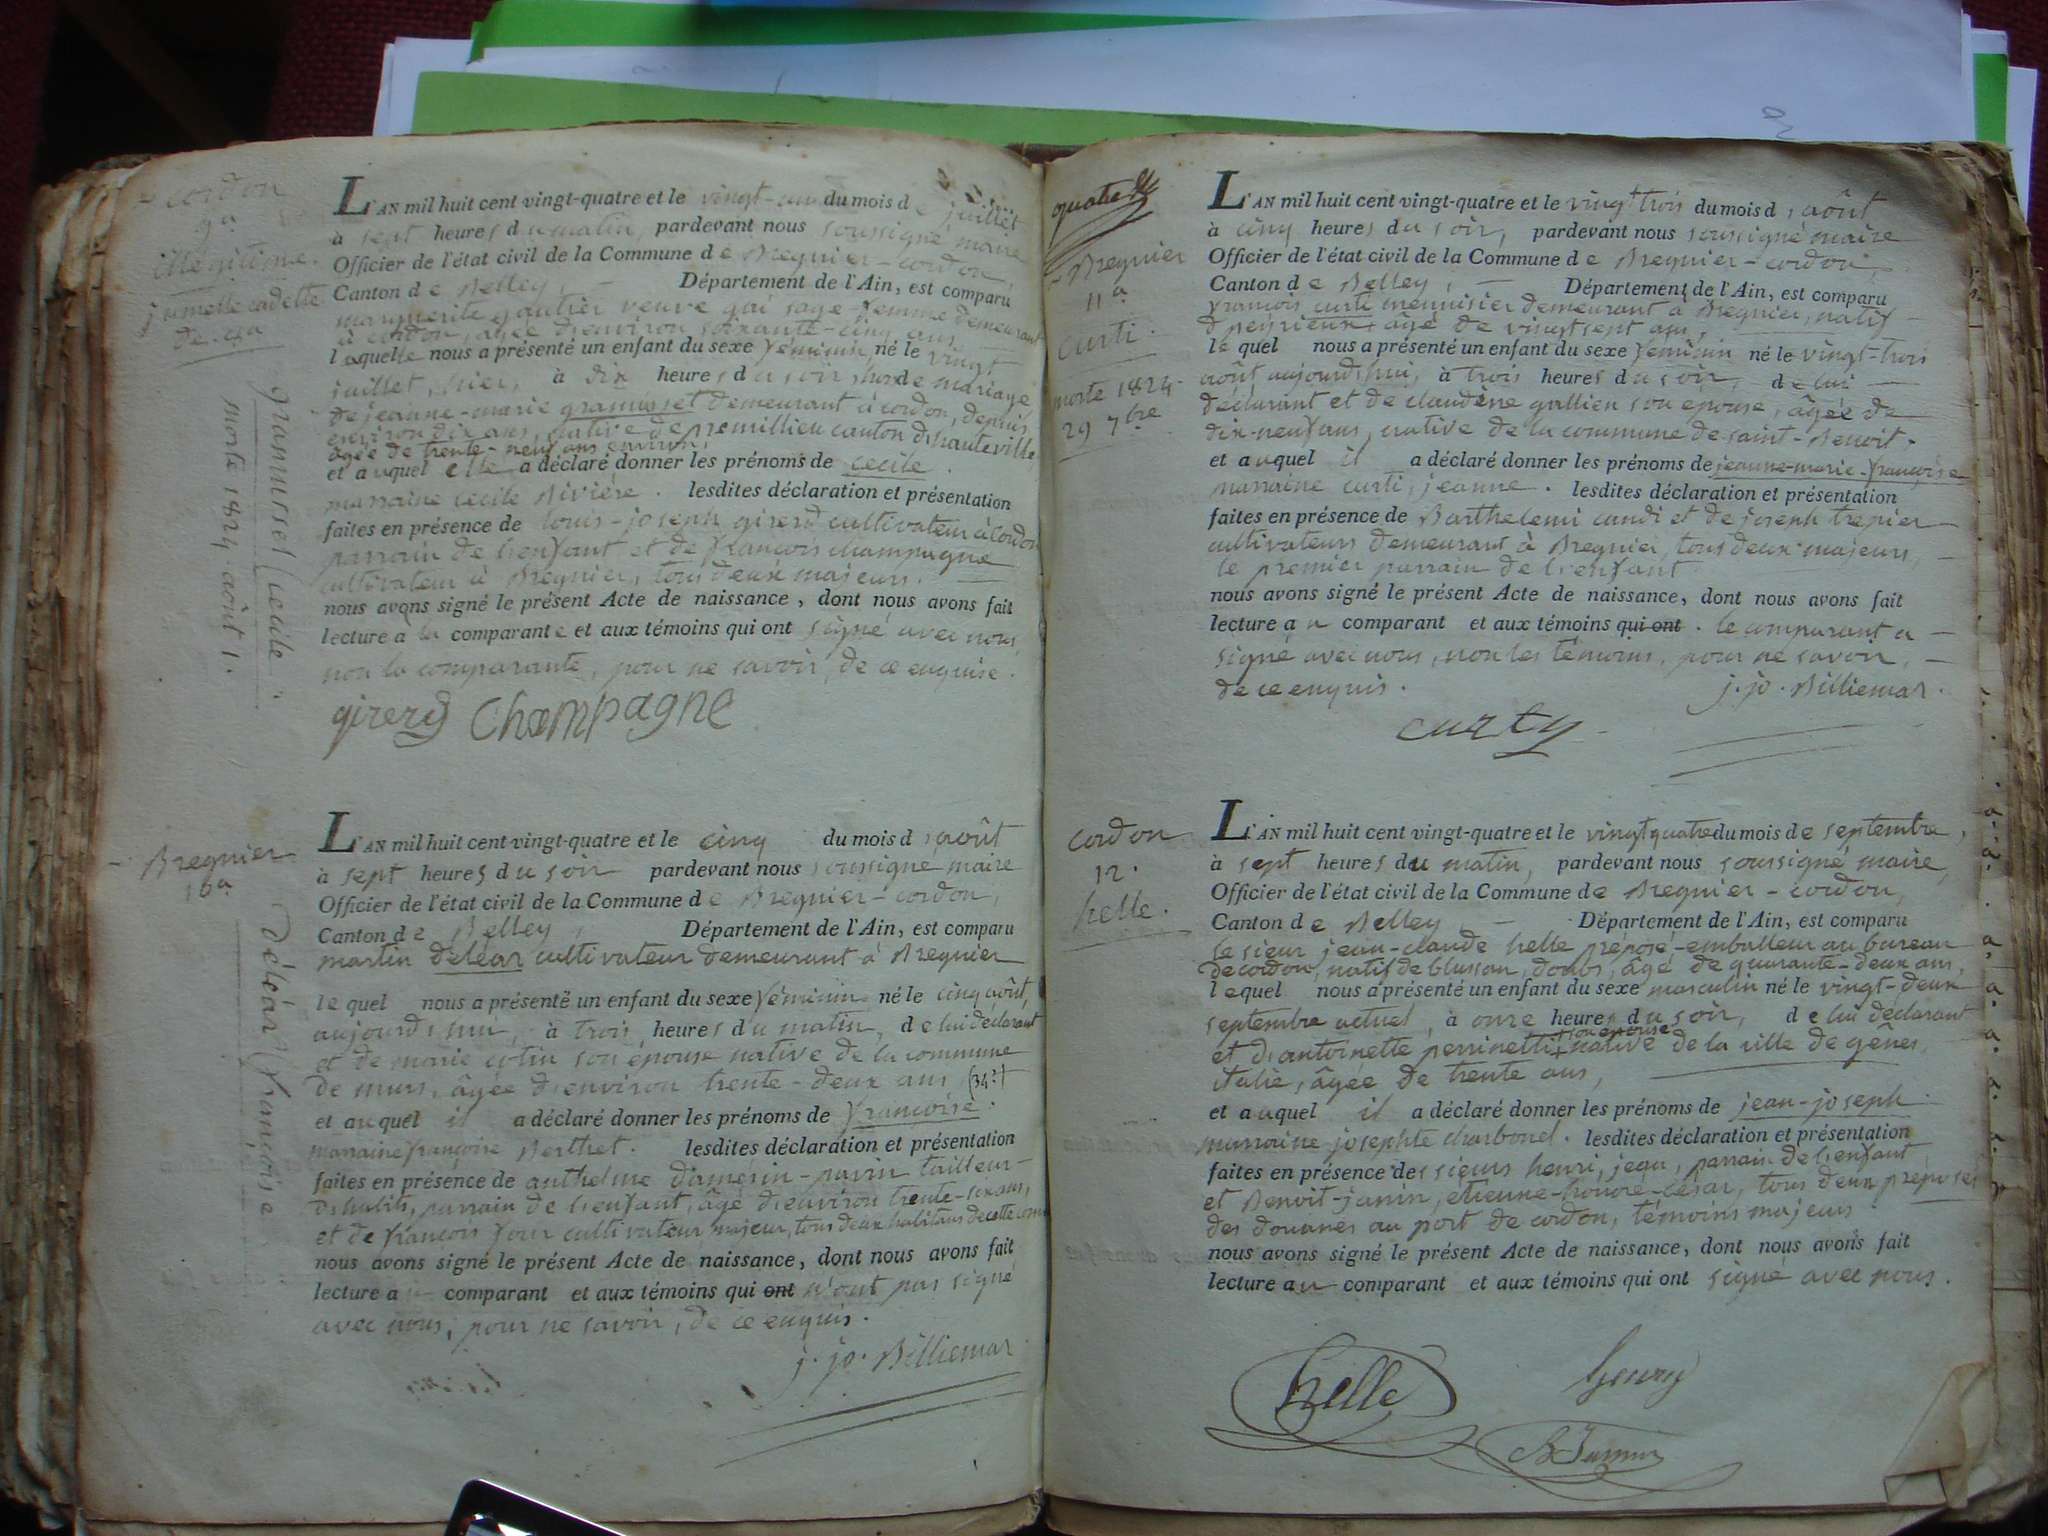 cordon
9a
illégitime.
jumelle cadette
de 4a
grannisset (cecile.
morte 1824 août 1.
L'AN mil huit cent vingt-quatre et le vingt-un du mois de juillet
à sept heures du matin, pardevant nous soussigné maire
Officier de l'état civil de la Commune de Bregnier-cordon
Canton de Belley, Département de l'Ain, est comparu
marguerite gautier veuve gai sage-femme demeurant
à cordon, âgée d'environ soixante-cinq ans,
laquelle nous a présenté un enfant du sexe féminin né le vingt
juillet, hier, à dix heures du soir, hors de mariage
de jeanne-marie grannisset demeurant à cordon, depuis
environ dix ans, native de premillieu canton d'hauteville
âgée de trente-neuf ans environ,
et auquel elle a déclaré donner les prénoms de cecile.
marraine cecile Rivière. lesdites déclaration et présentation
faites en présence de louis-joseph girerd cultivateur à Cordon
parrain de l'enfant et de françois champagne
cultivateur à Bregnier, tous deux majeurs.
nous avons signé le présent Acte de naissance, dont nous avons fait
lecture à la comparante et aux témoins qui ont signé avec nous
non la comparante, pour ne savoir, de ce enquise.
girerd Champagne
Bregnier
10a
déléar (françoise
L'AN mil huit cent vingt-quatre et le cinq du mois d'août
à sept heures du soir pardevant nous soussigné maire
Officier de l'état civil de la Commune de Bregnier-cordon,
Canton de Belley, Département de l'Ain, est comparu
martin deléar cultivateur demeurant à Bregnier
lequel nous a présenté un enfant du sexe féminin né le cinq août,
aujourd'hui, à trois heures du matin, de lui déclarant
et de marie cotin son épouse native de la commune
de murs, âgée d'environ trente-deux ans (34?)
et auquel il a déclaré donner les prénoms de françoise.
marraine françoise Berthet. lesdites déclaration et présentation
faites en présence de anthelme damesin-parrin tailleur
d'habits, parrain de l'enfant, âgé d'environ trente-six ans,
et de françois four cultivateur majeur, tous deux habitans de cette comm
nous avons signé le présent Acte de naissance, dont nous avons fait
lecture a comparant et aux témoins qui ont n'ont pas signé
avec nous, pour ne savoir, de ce enquis.
j. jo. Billiemar
quatre
Bregnier
11a
curti.
morte 1824
29 7bre
L'AN mil huit cent vingt-quatre et le vingt trois du mois d'août
à cinq heures du soir, pardevant nous soussigné maire
Officier de l'état civil de la Commune de Bregnier-cordon,
Canton de Belley, Département de l'Ain, est comparu
françois curti menuisier demeurant à Bregnier, natif
d'peyrieux, âgé de vingt sept ans,
lequel nous a présenté un enfant du sexe féminin né le vingt-trois
août, aujourd'hui, à trois heures du soir, de lui
déclarant et de claudine gallien son épouse, âgée de
dix-neuf ans, native de la commune de saint-Benoit.
et auquel il a déclaré donner les prénoms de jeanne-marie-françoise
marraine curti, jeanne. lesdites déclaration et présentation
faites en présence de Barthelemi candi et de joseph trepier
cultivateurs demeurant à Bregnier, tous deux majeurs,
le premier parrain de l'enfant
nous avons signé le présent Acte de naissance, dont nous avons fait
lecture au comparant et aux témoins qui ont. le comparant a
signé avec nous, non les témoins, pour ne savoir,
de ce enquis. j. jo. Billiemar.
curty
cordon
12.
helle.
L'AN mil huit cent vingt-quatre et le vingt quatre du mois de septembre,
à sept heures du matin, pardevant nous soussigné maire,
Officier de l'état civil de la Commune de Bregnier-cordon,
Canton de Belley Département de l'Ain, est comparu
le sieur jean-claude helle préposé-emballeur au bureau
de cordon, natif de blussan, doubs, âgé de quarante-deux ans,
lequel nous a présenté un enfant du sexe masculin né le vingt-deux
septembre actuel, à onze heures du soir, de lui déclarant
et d'antoinette perrinetti + son épouse native de la ville de gênes,
italie, âgée de trente ans,
et auquel il a déclaré donner les prénoms de jean-joseph.
marraine josephte charbonel. lesdites déclaration et présentation
faites en présence des sieurs henri, jean, parrain de l'enfant
et Benoit-janin, etienne-honoré-césar, tous deux préposés
des douanes au port de cordon, témoins majeurs
nous avons signé le présent Acte de naissance, dont nous avons fait
lecture au comparant et aux témoins qui ont signé avec nous.
helle henry
B Jannin